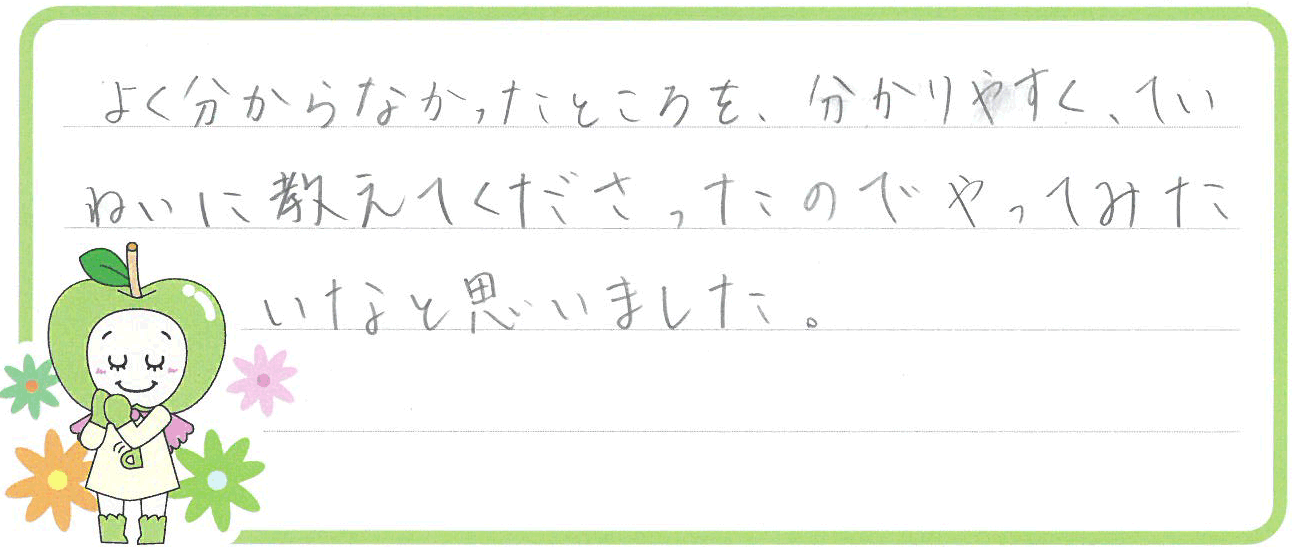 よく分からなかったところを、分かりやすく、てい
ねいに教えてくださったのでやってみた
いなと思いました。